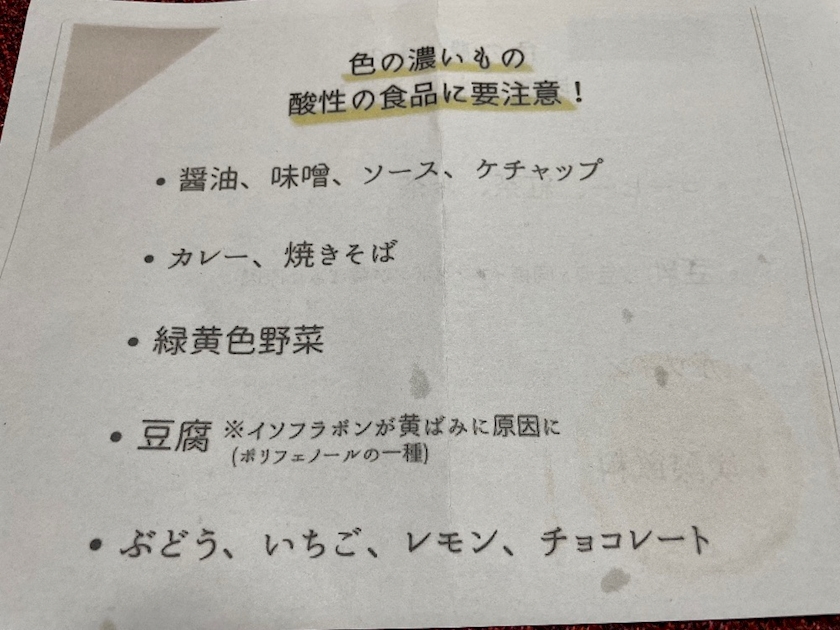 色の濃いもの
酸性の食品に要注意！
・醤油、味噌、ソース、ケチャップ
・カレー、焼きそば
・緑黄色野菜
・豆腐 ※イソフラボンが黄ばみに原因に
(ポリフェノールの一種)
・ぶどう、いちご、レモン、チョコレート